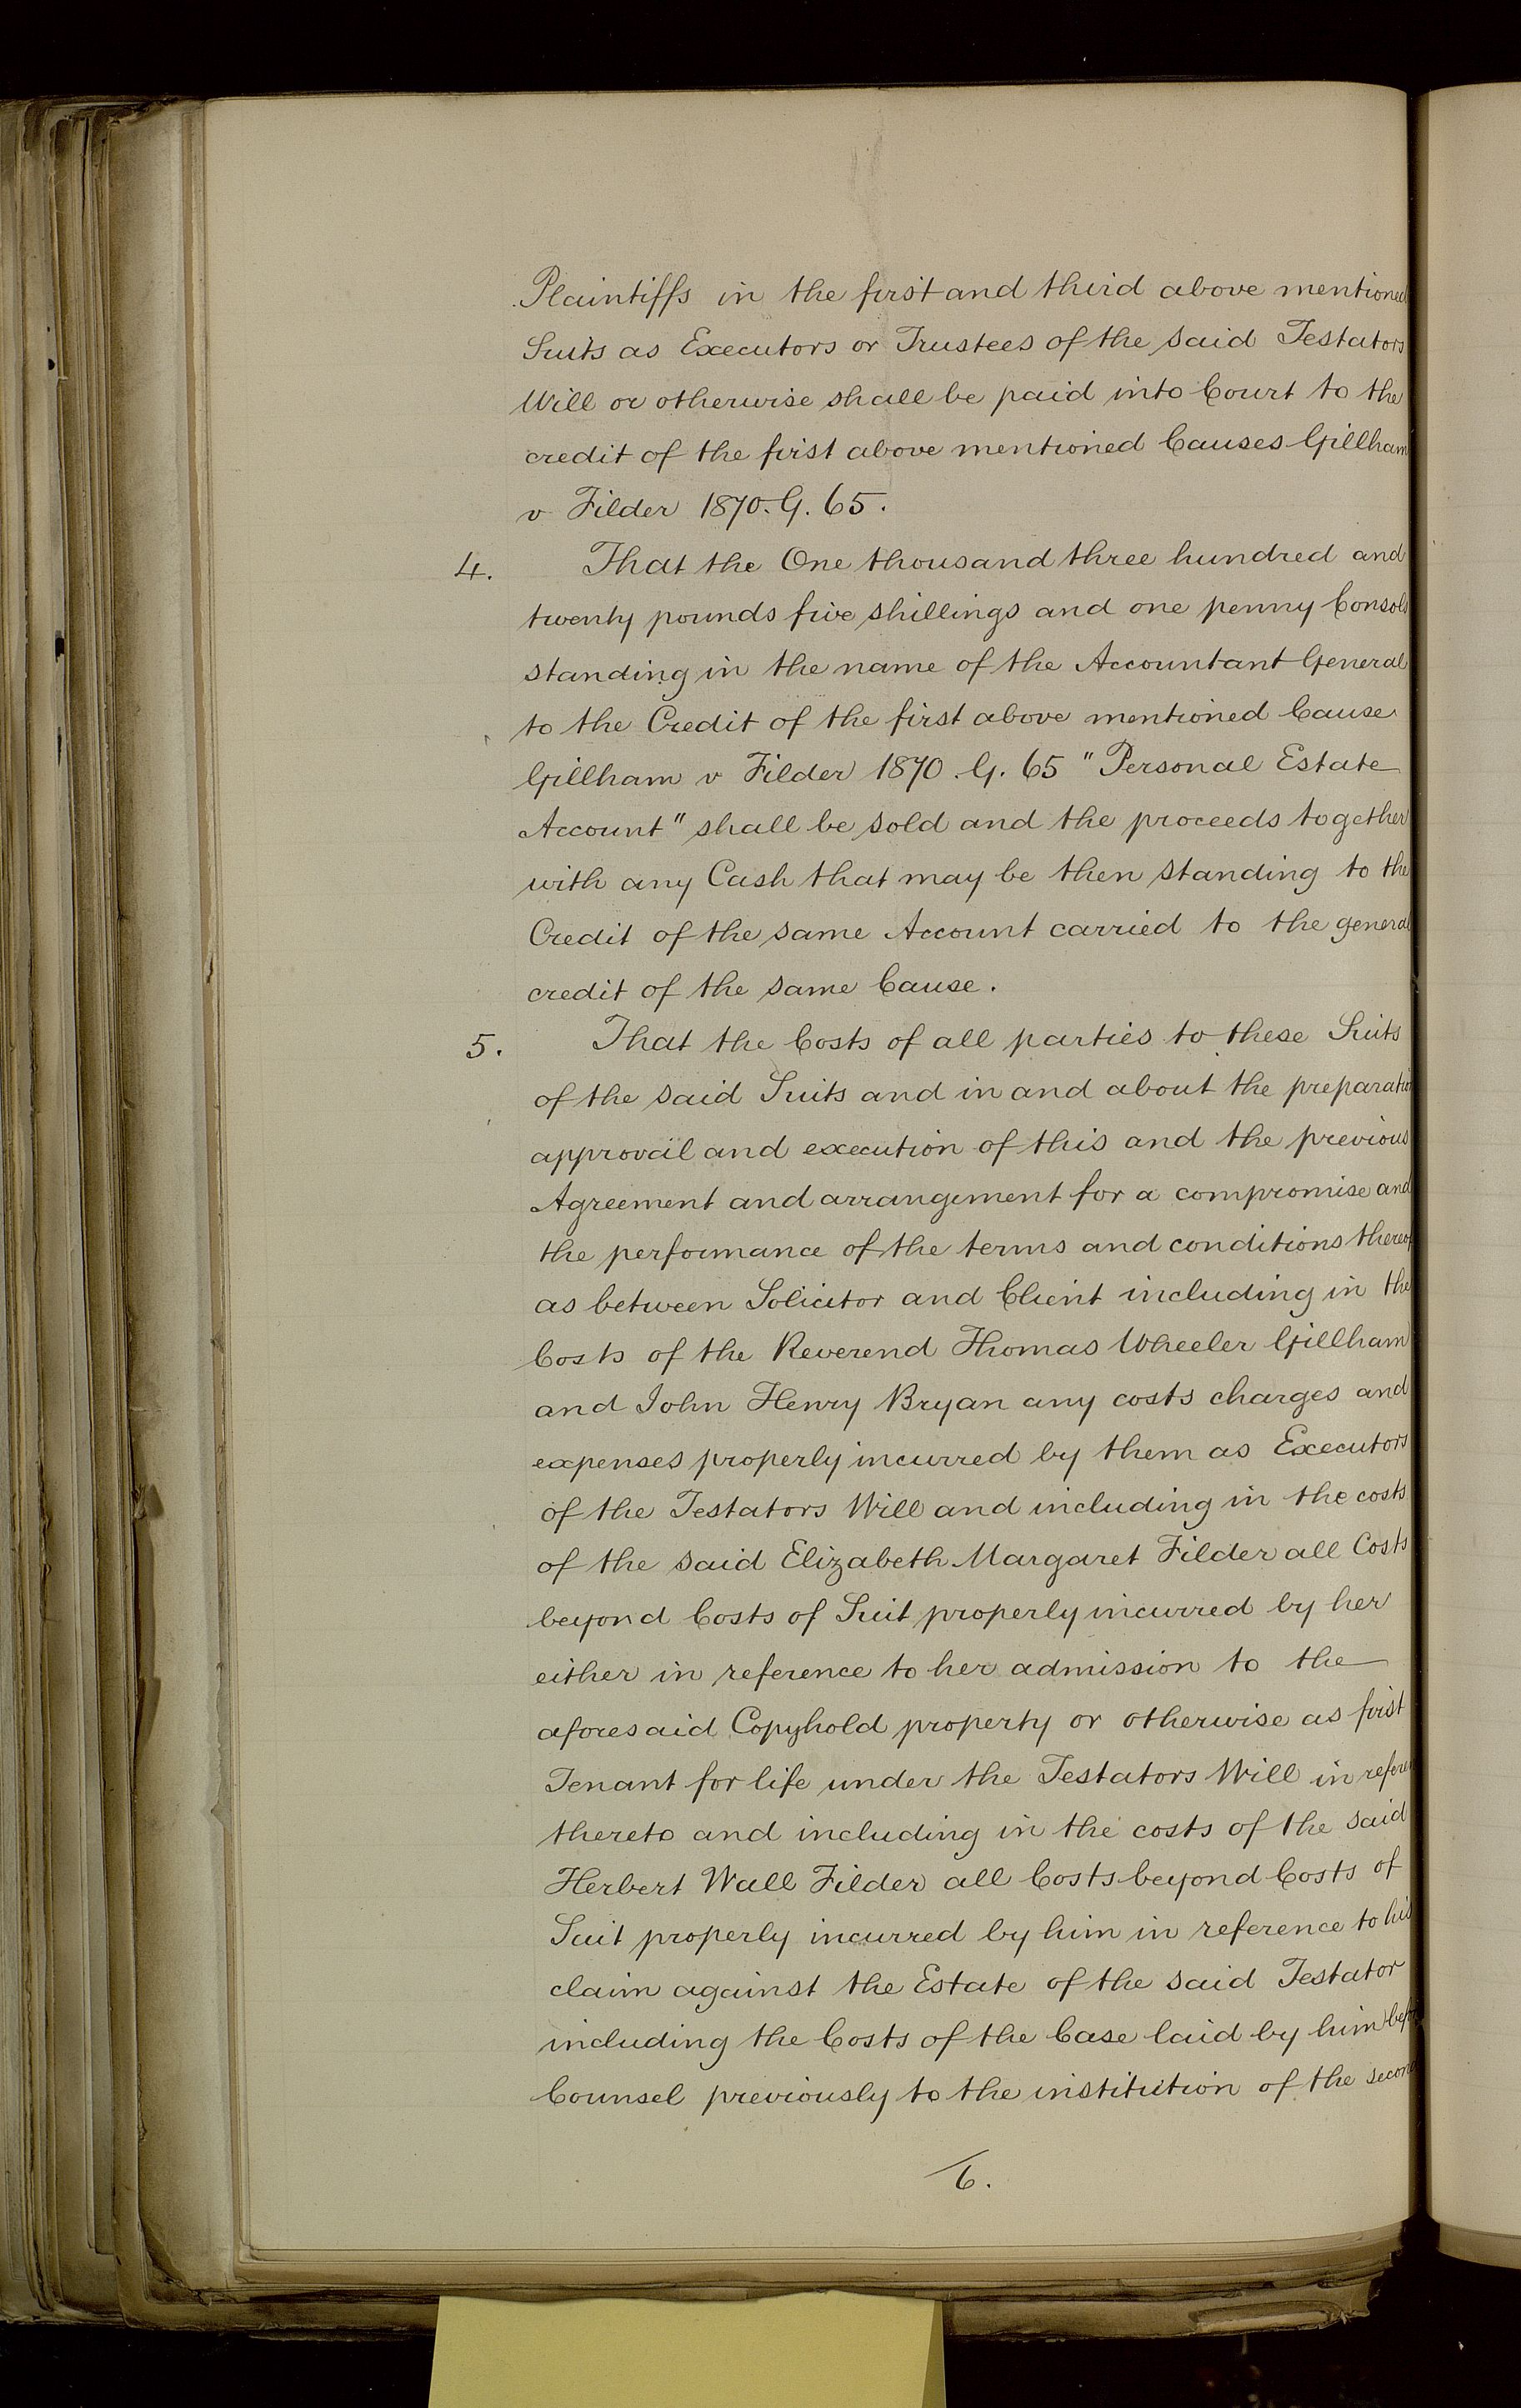 Plaintiffs in the first and third above mentioned
Suits as Executors or Trustees of the said Testators
Will or otherwise shall be paid into Court to the
credit of the first above mentioned Causes Gillham
v Filder 1870. G. 65.
4. That the One thousand three hundred and
twenty pounds five shillings and one penny Consols
standing in the name of the Accountant General
to the Credit of the first above mentioned Cause
Gillham v Filder 1870. G. 65 "Personal Estate
Account" shall be sold and the proceeds together
with any Cash that may be then standing to the
Credit of the same Account carried to the general
credit of the same Cause.
5. That the Costs of all parties to these Suits
of the said Suits and in and about the preparation
approval and execution of this and the previous
Agreement and arrangement for a compromise and
the performance of the terms and conditions thereof
as between Solicitor and Client including in the
Costs of the Reverend Thomas Wheeler Gillham
and John Henry Bryan any costs charges and
expenses properly incurred by them as Executors
of the Testators Will and including in the costs
of the said Elizabeth Margaret Filder all Costs
beyond Costs of Suit properly incurred by her
either in reference to her admission to the
aforesaid Copyhold property or otherwise as first
Tenant for life under the Testators Will in
thereto and including in the costs of the said
Herbert Wall Filder all Costs beyond Costs of
Suit properly incurred by him in reference to his
claim against the Estate of the said Testator
including the Costs of the Case laid by him
Counsel previously to the institution of the second
6.